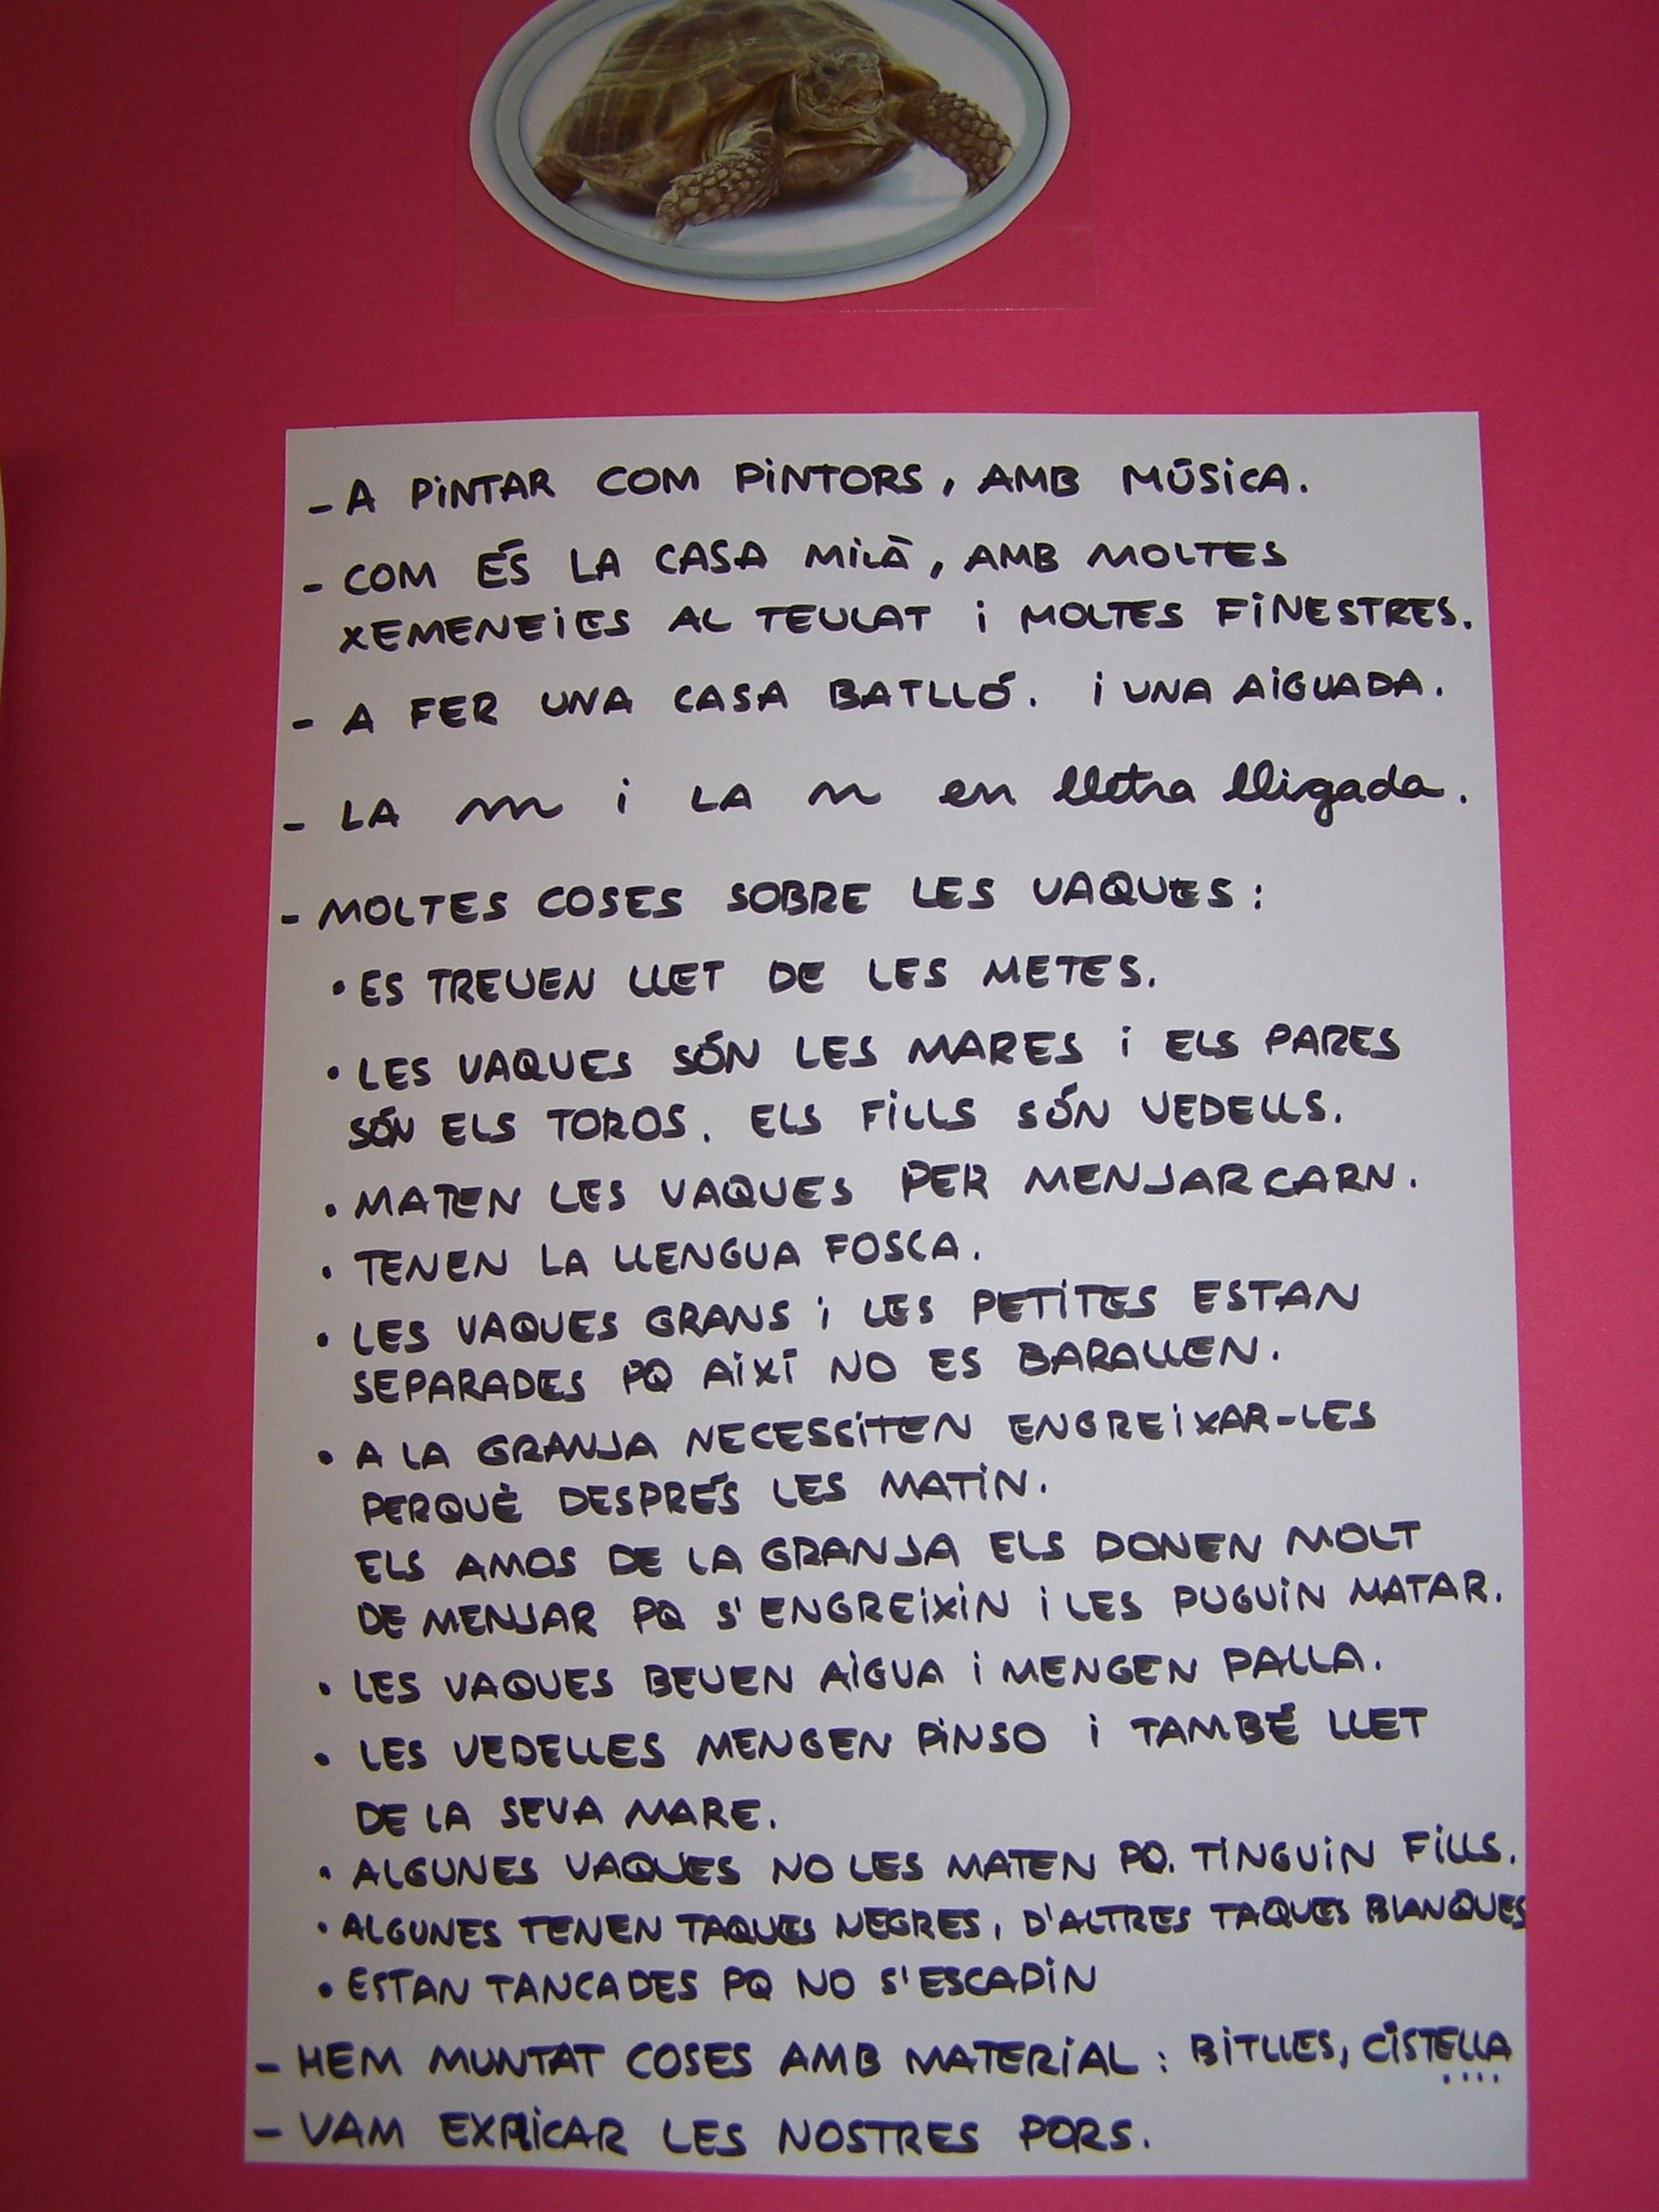 - A PINTAR COM PINTORS, AMB MÚSICA.
- COM ÉS LA CASA MILÀ, AMB MOLTES
XEMENEIES AL TEULAT i MOLTES FINESTRES.
- A FER UNA CASA BATLLÓ. i UNA AIGUADA.
- LA m i LA n en lletra lligada.
- MOLTES COSES SOBRE LES VAQUES:
• ES TREUEN LLET DE LES METES.
• LES VAQUES SÓN LES MARES i ELS PARES
SÓN ELS TOROS. ELS FILLS SÓN VEDELLS.
• MATEN LES VAQUES PER MENJAR CARN.
• TENEN LA LLENGUA FOSCA.
• LES VAQUES GRANS i LES PETITES ESTAN
SEPARADES PQ AIXÍ NO ES BARALLEN.
• A LA GRANJA NECESSITEN ENGREIXAR-LES
PERQUÈ DESPRÉS LES MATIN.
ELS AMOS DE LA GRANJA ELS DONEN MOLT
DE MENJAR PQ S'ENGREIXIN i LES PUGUIN MATAR.
• LES VAQUES BEUEN AIGUA i MENGEN PALLA.
• LES VEDELLES MENGEN PINSO i TAMBÉ LLET
DE LA SEVA MARE.
• ALGUNES VAQUES NO LES MATEN PQ. TINGUIN FILLS.
• ALGUNES TENEN TAQUES NEGRES, D'ALTRES TAQUES BLANQUES
• ESTAN TANCADES PQ NO S'ESCADIN
- HEM MUNTAT COSES AMB MATERIAL: BITLLES, CISTELLA
....
- VAM EXPLICAR LES NOSTRES PORS.